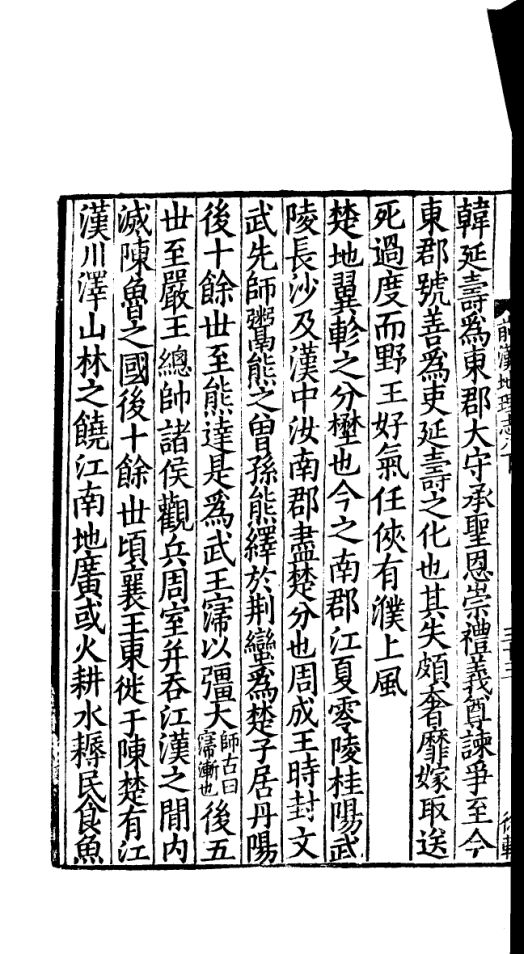 韓延壽爲東郡大守承聖恩崇禮義尊諫爭至今
東郡號善爲吏延壽之化也其失頗奢靡嫁取送
死過度而野王好氣任俠有濮上風
楚地翼軫之分壄也今之南郡江夏零陵桂陽武
陵長沙及漢中汝南郡盡楚分也周成王時封文
武先師鬻熊之曾孫熊繹於荆蠻爲楚子居丹陽
後十餘世至熊達是爲武王寖以彊大師古曰寖漸也後五
世至嚴王總帥諸侯觀兵周室并吞江漢之間内
滅陳魯之國後十餘世頃襄王東徙于陳楚有江
漢川澤山林之饒江南地廣或火耕水耨民食魚